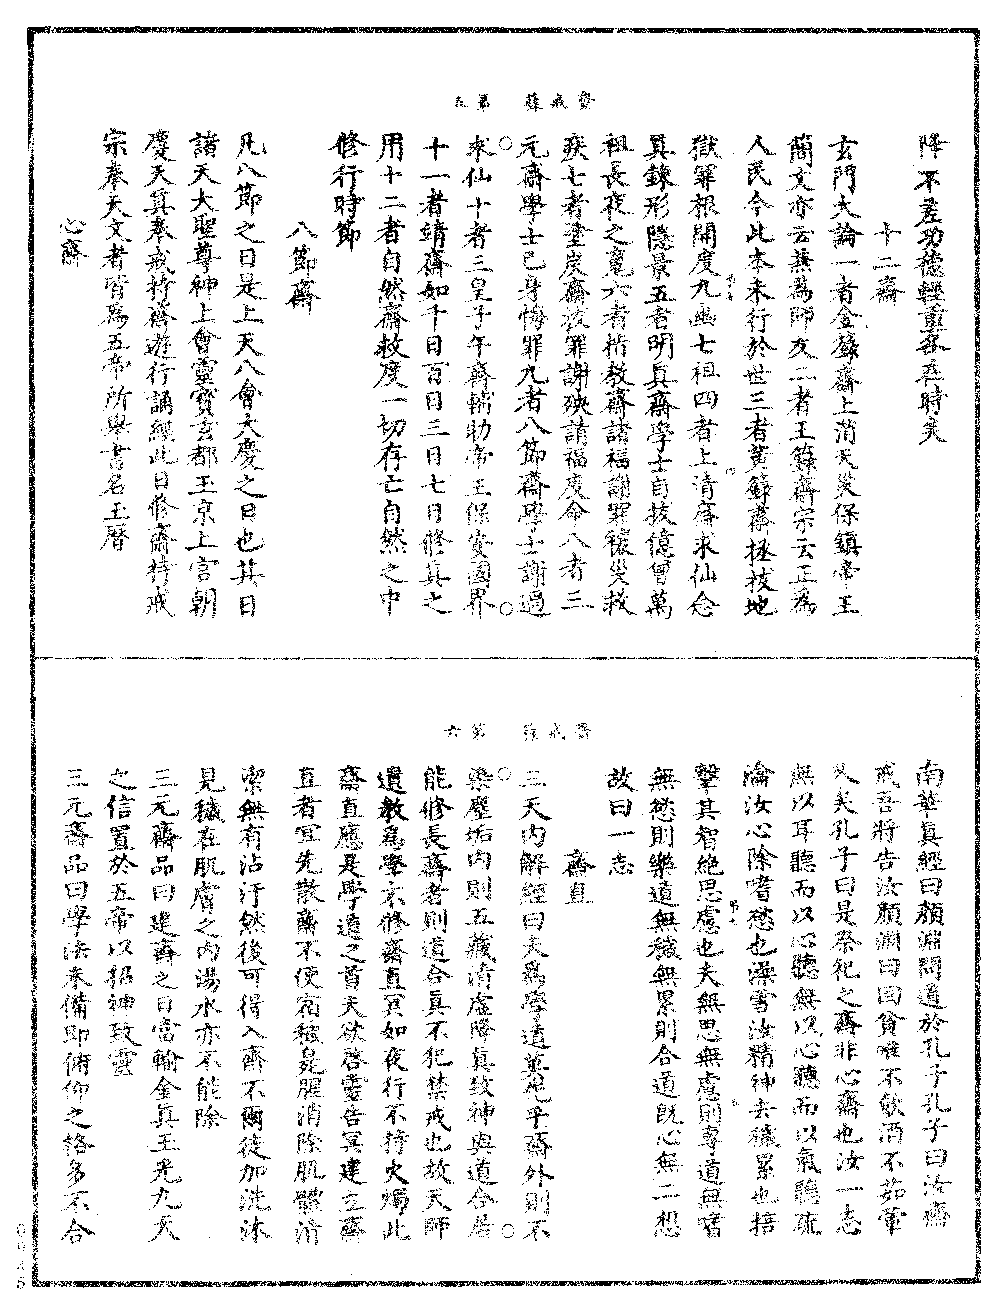 齋戒籙　第五
降不差功德輕重各在時矣
十二齋
玄門大論一者金籙齋上消天災保鎮帝王
簡文亦云兼為師友二者玉籙齋宗云正為
人民今此本未行於世三者黃籙齋拯拔地
獄罪根開度九幽七祖四者上清齋求仙念
真鍊形隱景五者明真齋學士自拔億曾萬
祖長夜之魂六者指教齋諸福謝罪禳災救
疾七者塗炭齋拔罪謝殃請福度命八者三
元齋學士己身悔罪九者八節齋學士謝過
求仙十者三皇子午齋輔助帝王保安國界
十一者靖齋如千日百日三日七日修真之
用十二者自然齋救度一切存亡自然之中
修行時節
八節齋
凡八節之日是上天八會大慶之日也其日
諸天大聖尊神上會靈寶玄都玉京上宮朝
慶天真奉戒持齋遊行誦經此日修齋持戒
宗奉天文者皆為五帝所舉書名玉曆
心齋
齋戒籙　第六
南華真經曰顏淵問道於孔子孔子曰汝齋
戒吾將告汝顏淵曰回貧唯不飲酒不茹葷
久矣孔子曰是祭祀之齋非心齋也汝一志
無以耳聽而以心聽無以心聽而以氣聽疏
瀹汝心除嗜慾也澡雪汝精神去穢累也掊
擊其智絕思慮也夫無思無慮則專道無嗜
無慾則樂道無穢無累則合道既心無二想
故曰一志
齋直
三天內解經曰夫為學道莫先乎齋外則不
染塵垢內則五藏清虛降真致神與道合居
能修長齋者則道合真不犯禁戒也故天師
遺教為學不修齋直冥如夜行不持火燭此
齋直應是學道之首夫欲啓靈告冥建立齋
直者宜先散齋不使宿穢臭腥消除肌體清
潔無有沾汙然後可得入齋不爾徒加洗沐
見穢在肌膚之內湯水亦不能除
三元齋品曰建齋之日當輸金真玉光九天
之信置於五帝以招神致靈
三元齋品曰學法未備即俯仰之格多不合